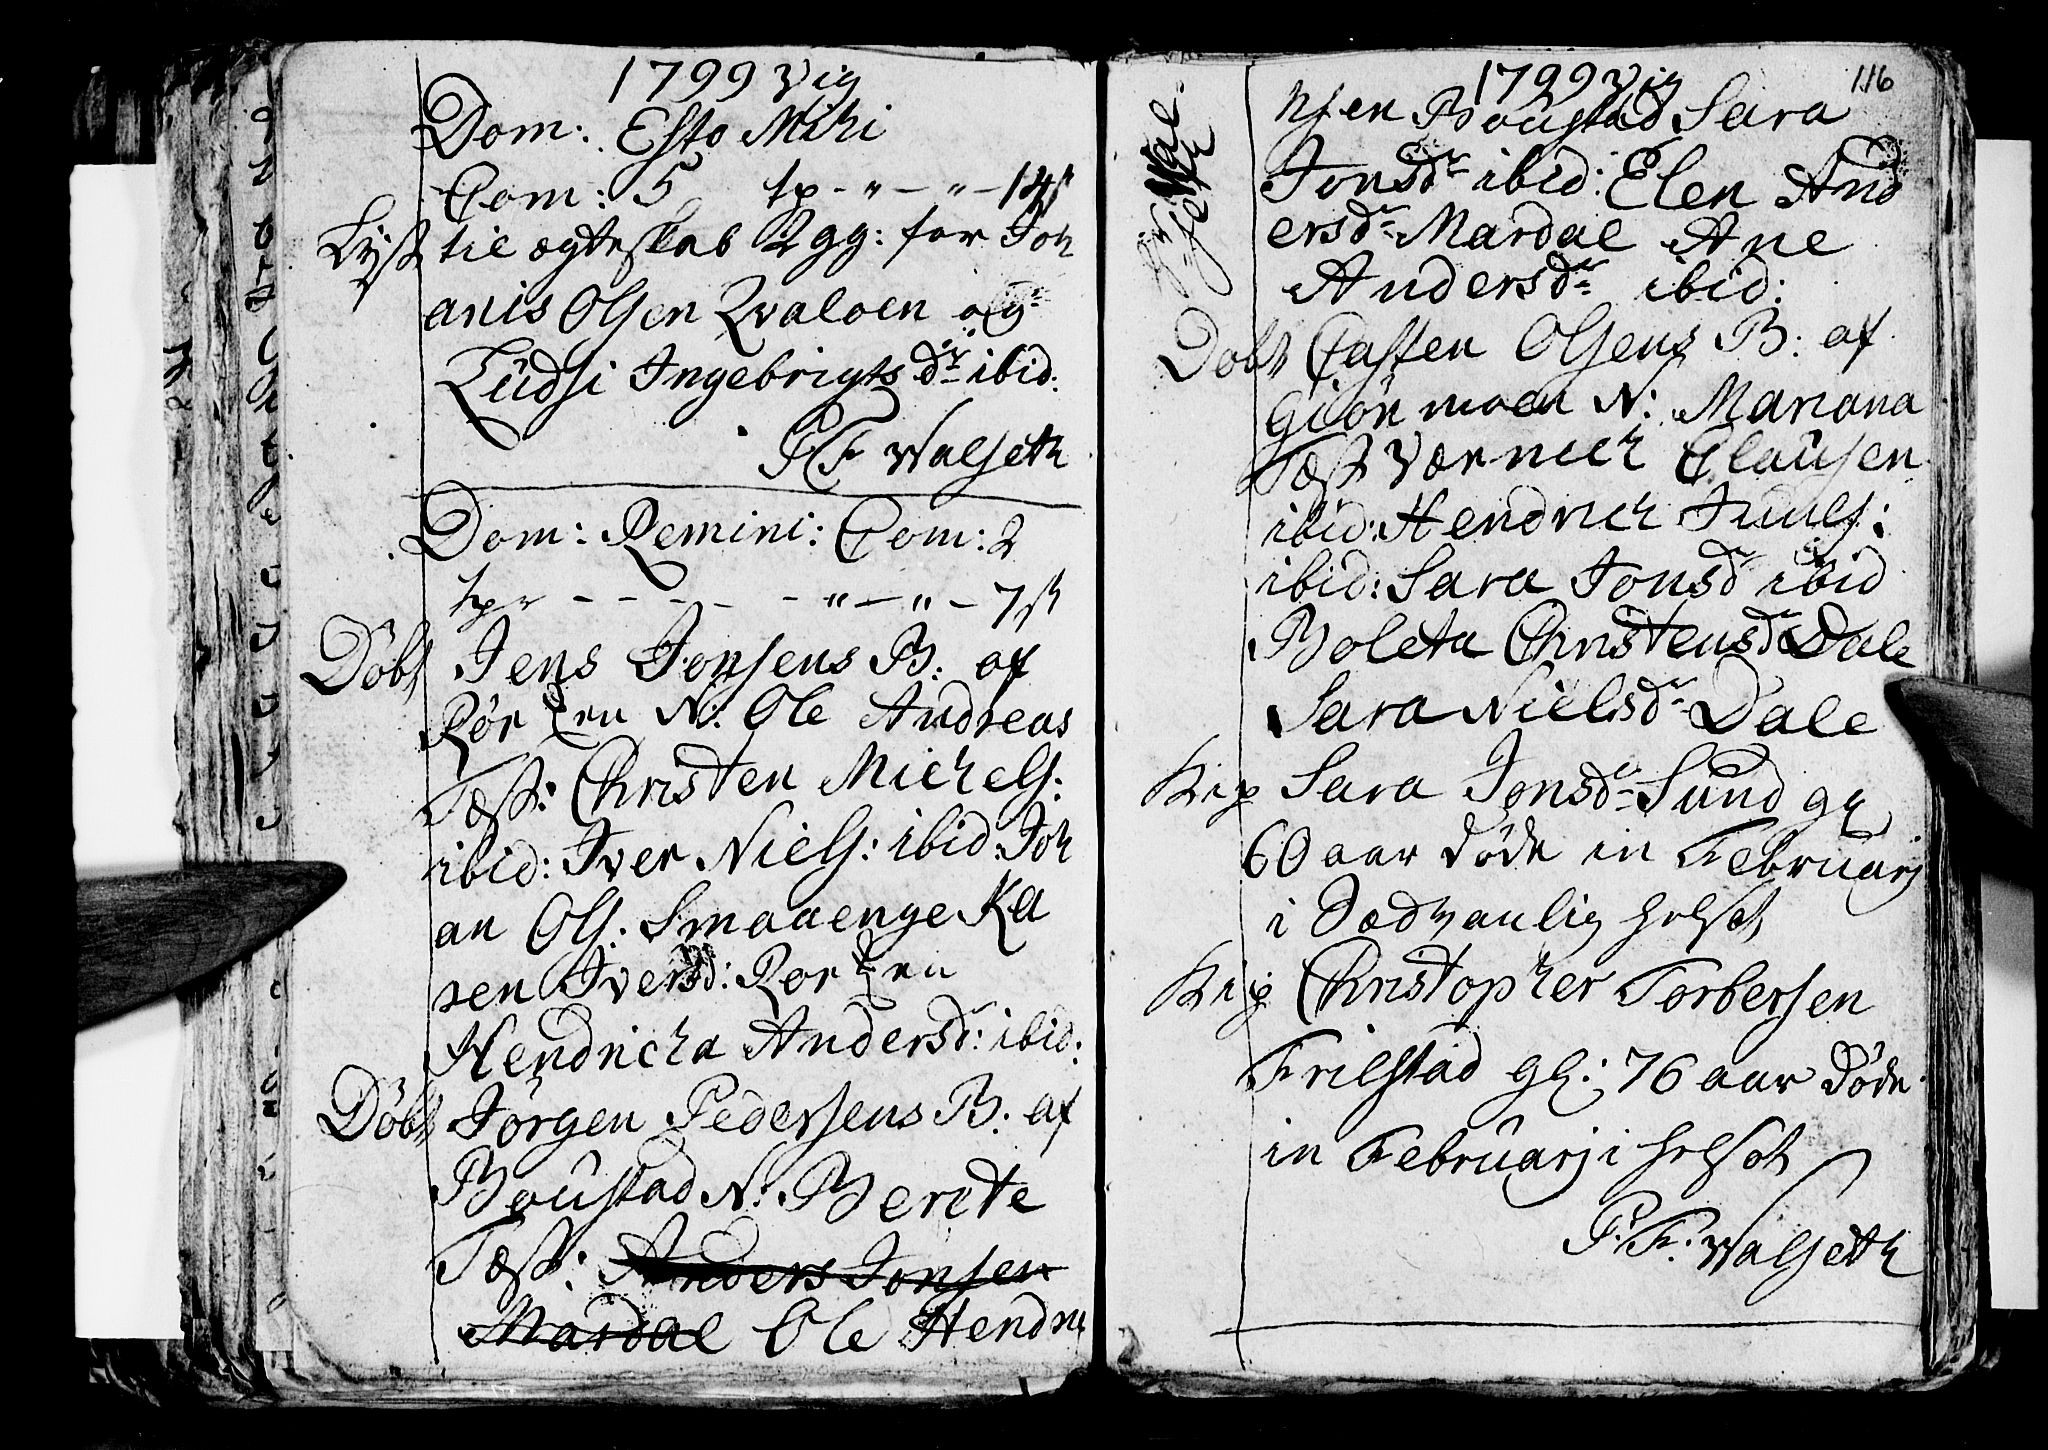 1799 Vig
Dom: Esto Mihi
Com: 5 tp - " - " - 14 ß
Lyst til ægteskab 2 gg: for Joh
anis Olsen Qvaloen og
Ludsi Ingebrigts dr ibid:
P F Walseth
Dom: Remini: Com: 2
tp - - - - - " - " - 7 ß
Døbt Jens Jonsens B: af
Rør N: Ole Andreas
Tæst: Christen Michels:
ibid: Iver Niels: ibid: Joh
an Ols: Smaaenge Ka
ren Iversd: Rør
Hendricha Andersd: ibid:
Døbt Jörgen Pedersens B: af
Boustad N: Berete
Tæst: Anders Jonsen
Mardal Ole Hendri
1799 Vig
116
hsen Boustad Sara
Jonsdr ibid: Elen And
ersdr Mardal Ane
Andersdr ibid:
Døbt Casten Olsens B: af
Giönmoen N: Mariana
Tæst Værnich Clausen
ibid: Hendrich Juuls:
ibid: Sara Jonsdr ibid
Boleta Christensdr Dale
Sara Nielsdr Dale
Sara Jonsdr Sund gl
60 aar døde in Februarj
i Sædvanlig helsot
Christopher Torbersen
Frilstad gl: 76 aar døde
in Februarj i helsot
P: F: Walseth